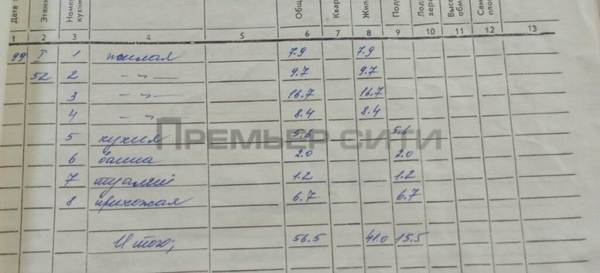 Дата
Этаж
Общ
Квар
Жил
1 2 3 4 5 6 7 8 9 10 11 12 13
99 I 1 жилая 7.9 7.9
52 2 -"- 9.7 9.7
3 -"- 16.7 16.7
4 -"- 8.4 8.4
Премьер сити
5 кухня 5.6 5.6
6 ванна 2.0 2.0
7 туалет 1.2 1.2
8 прихожая 6.7 6.7
Итого; 56.5 41.0 15.5